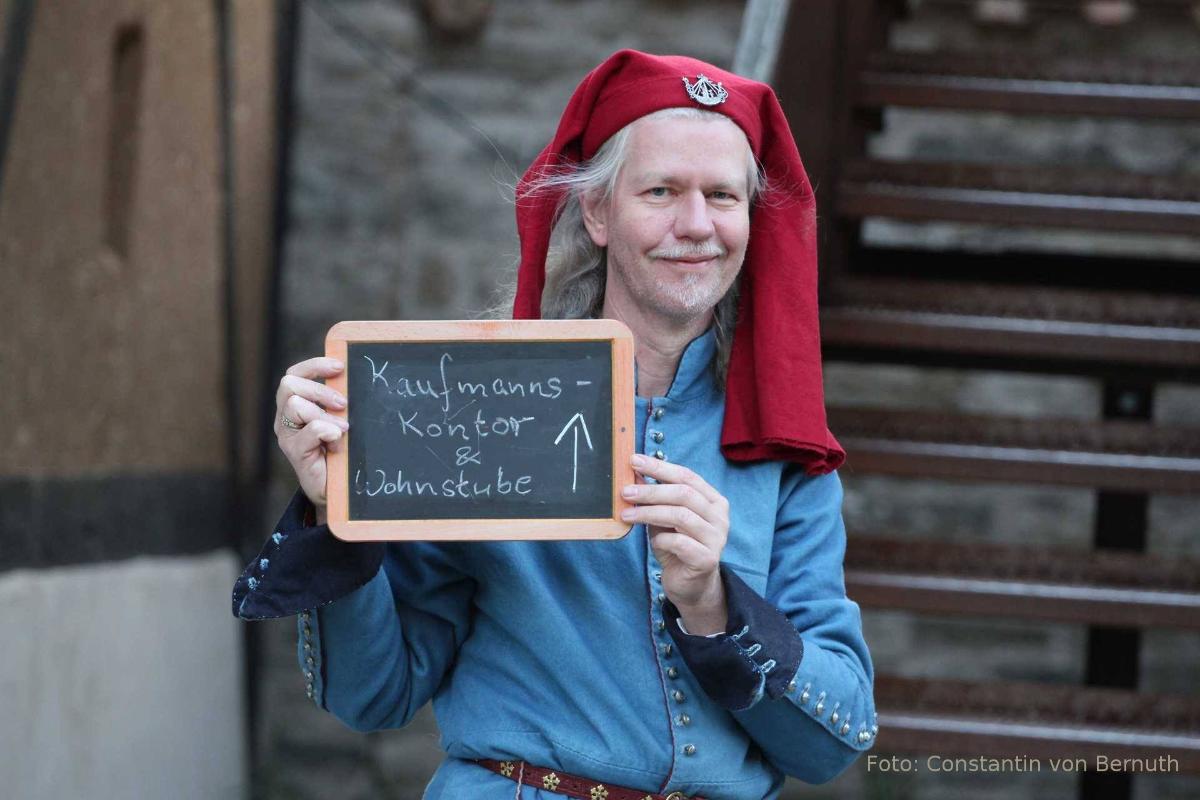 Kaufmanns-
Kontor
&
Wohnstube
Foto: Constantin von Bernuth